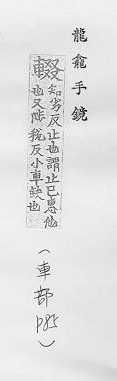 龍龕手鏡
輟
知劣反止也謂止已息也
也又陟稅反小車缺也
（車部P85）